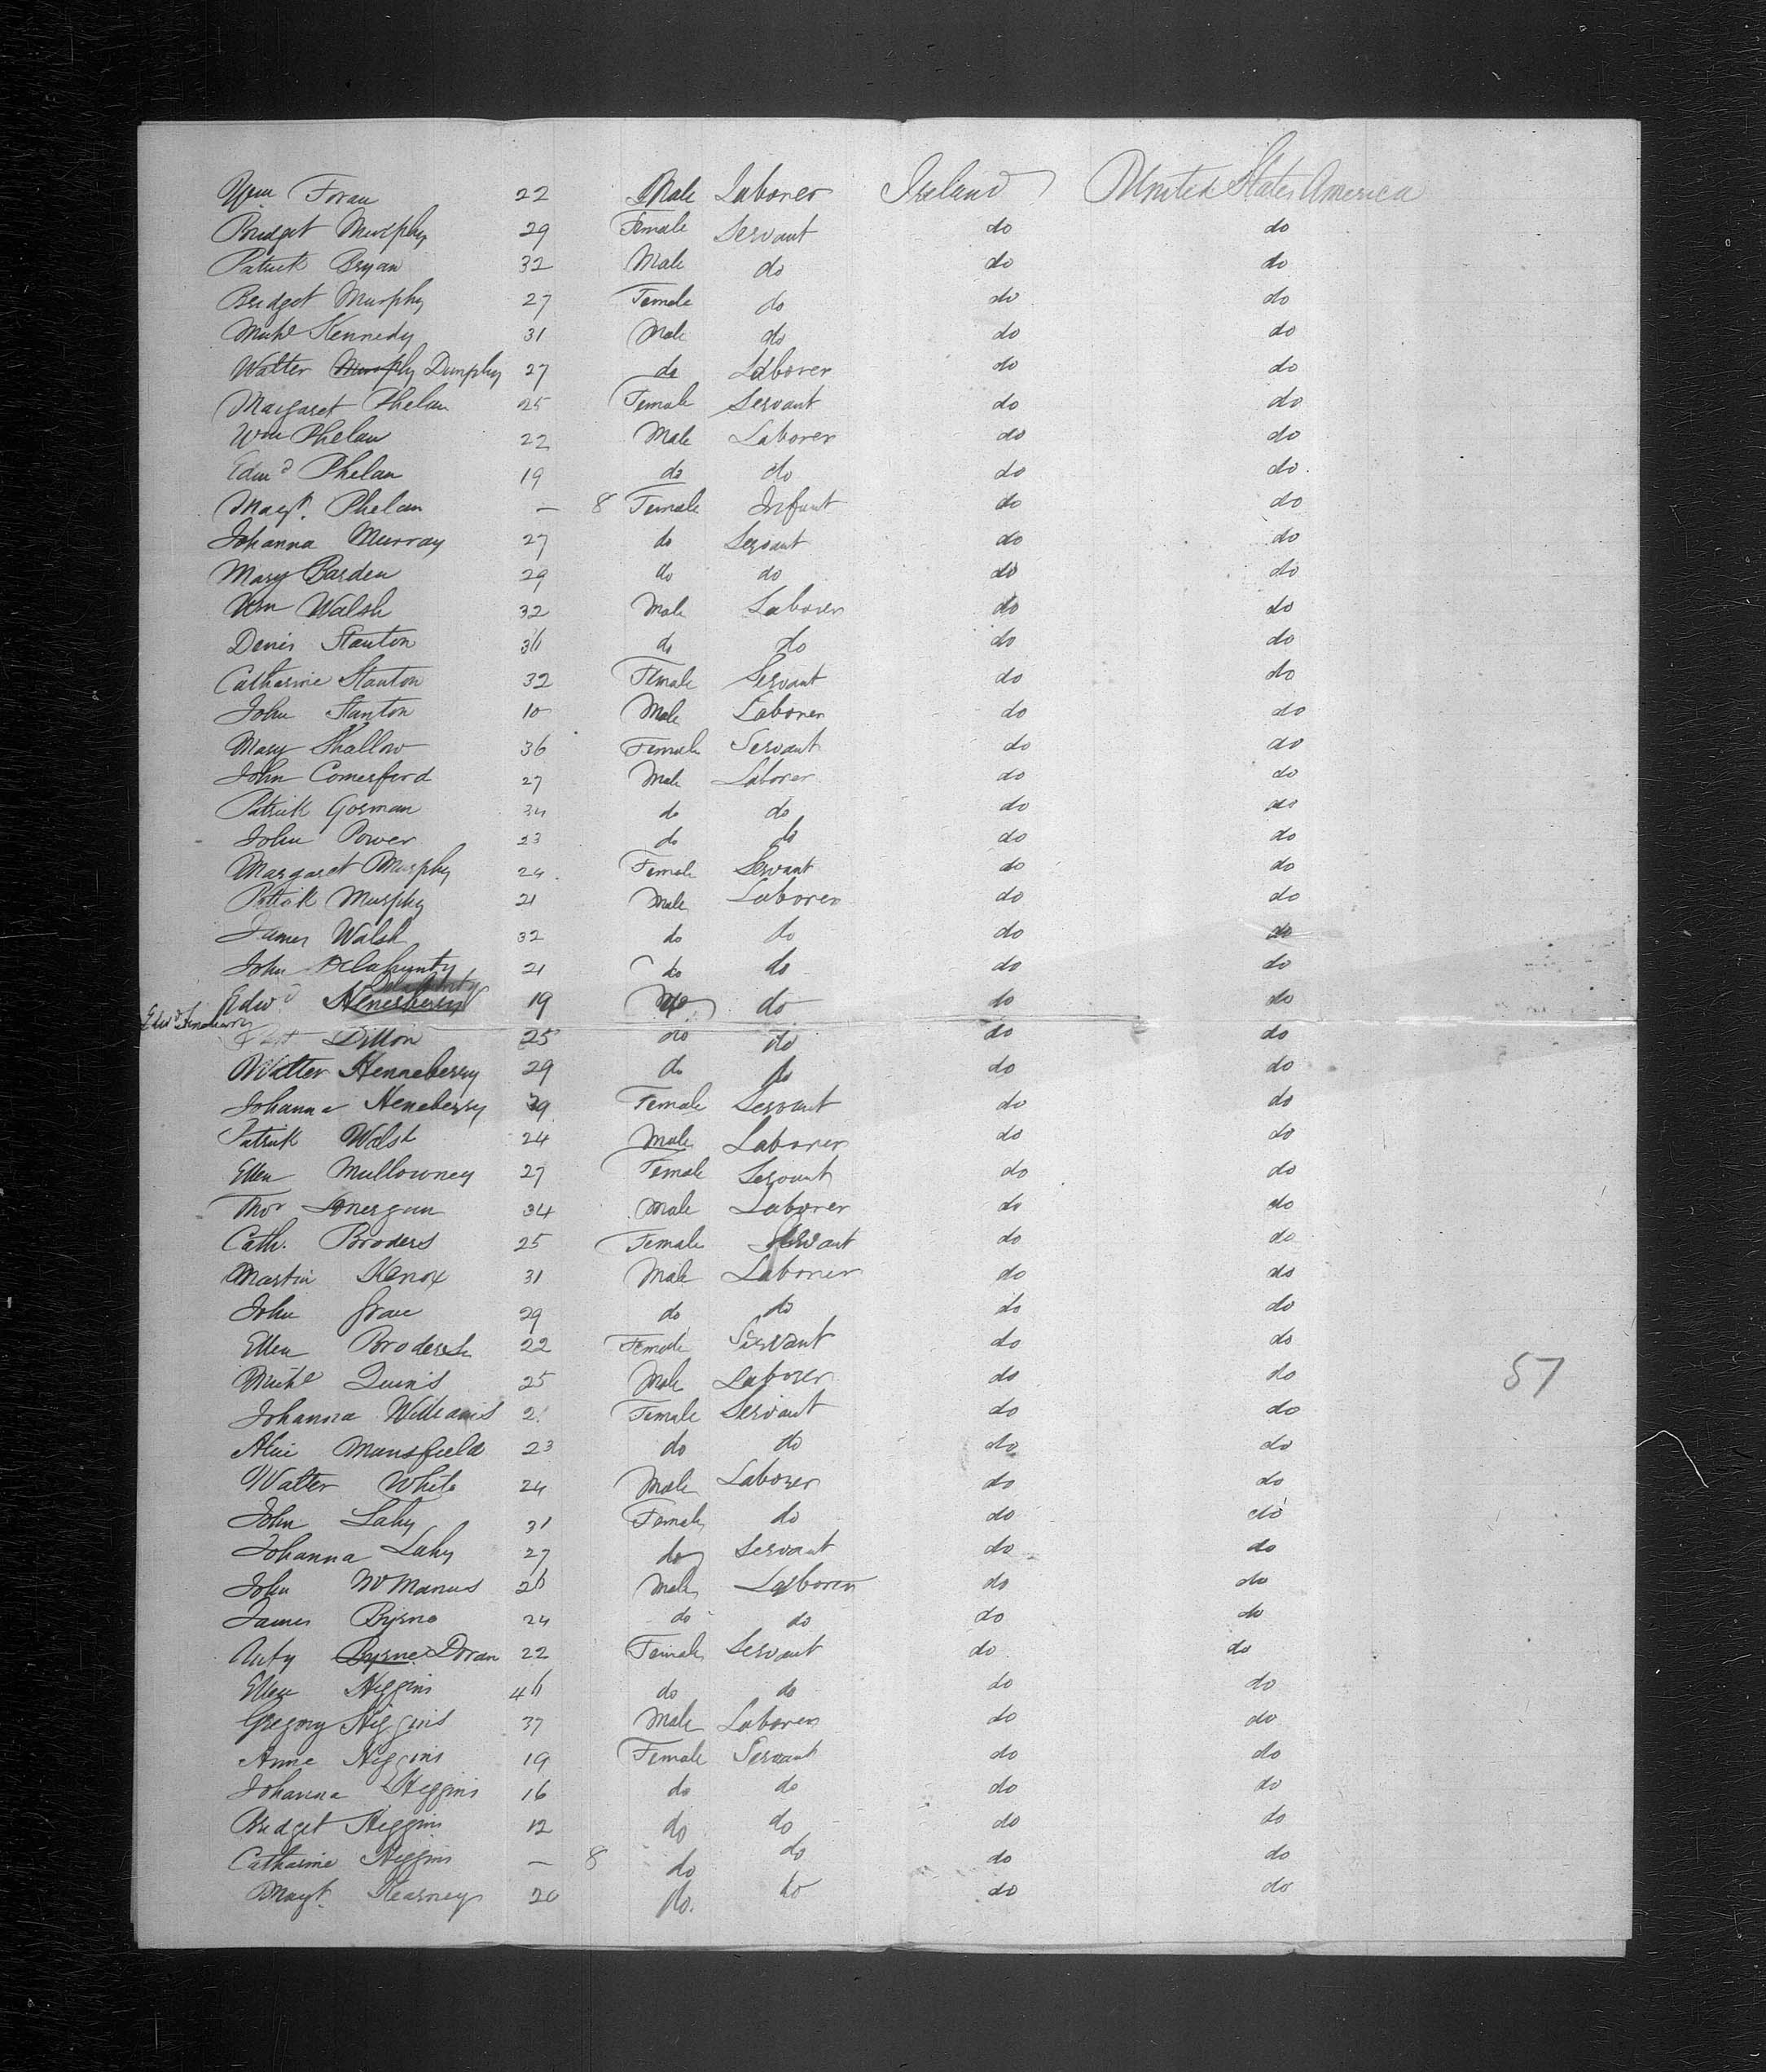 Wm. Foran 22 Male Laborer Ireland United States America
Bridget Murphy 29 Female Servant do do
Patrick Bryan 32 Male do do do
Bridget Murphy 27 Female do do do
Michl Kennedy 31 Male do do do
Walter Murphy Dunphy 27 do Laborer do do
Margaret Phelan 25 Female Servant do do
Wm Phelan 22 Male Laborer do do
Edwd Phelan 19 do do do do
Magt. Phelan — 8 Female Infant do do
Johanna Murray 27 do Servant do do
Mary Barden 29 do do do do
Wm Walsh 32 Male Laborer do do
Denis Stanton 36 do do do do
Catharine Stanton 32 Female Servant do do
John Stanton 10 Male Laborer do do
Mary Shallow 36 Female Servant do do
John Comerford 27 Male Laborer do do
Patrick Gorman 34 do do do do
John Power 23 do do do do
Margaret Murphy 24 Female Servant do do
Patrick Murphy 21 Male Laborer do do
James Walsh 32 do do do do
John Delahunty 21 do do do do
Edwd Heneberry 19 do do do
Edwd Heneberry
Dillon 25 do do do do
Walter Henneberry 29 do do do do
Johanna Heneberry 29 Female Servant do do
Patrick Walsh 24 Male Laborer do do
Ellen Mullowney 27 Female Servant do do
Thos Lonergan 34 Male Laborer do do
Cath. Broders 25 Female Servant do do
Martin Kenox 31 Male Laborer do do
John Grace 29 do do do do
Ellen Broderick 22 Female Servant do do
Michl Quins 25 Male Laborer do do
57
Johanna Williams Female Servant do do
Alice Mansfield 23 do do do do
Walter White 24 Male Laborer do do
John Lahy 31 Female do do do
Johanna Lahy 27 do Servant do do
John McManus 26 Male Laborer do do
James Byrne 24 do do do do
Byrne Doran 22 Female Servant do do
Ellen Higgins 46 do do do do
Gregory Higgins 37 Male Laborer do do
Anne Higgins 19 Female Servant do do
Johanna Higgins 16 do do do do
Bridget Higgins 12 do do do do
Catharine Higgins — 8 do do do do
Magt. Kearney 20 do. do do do